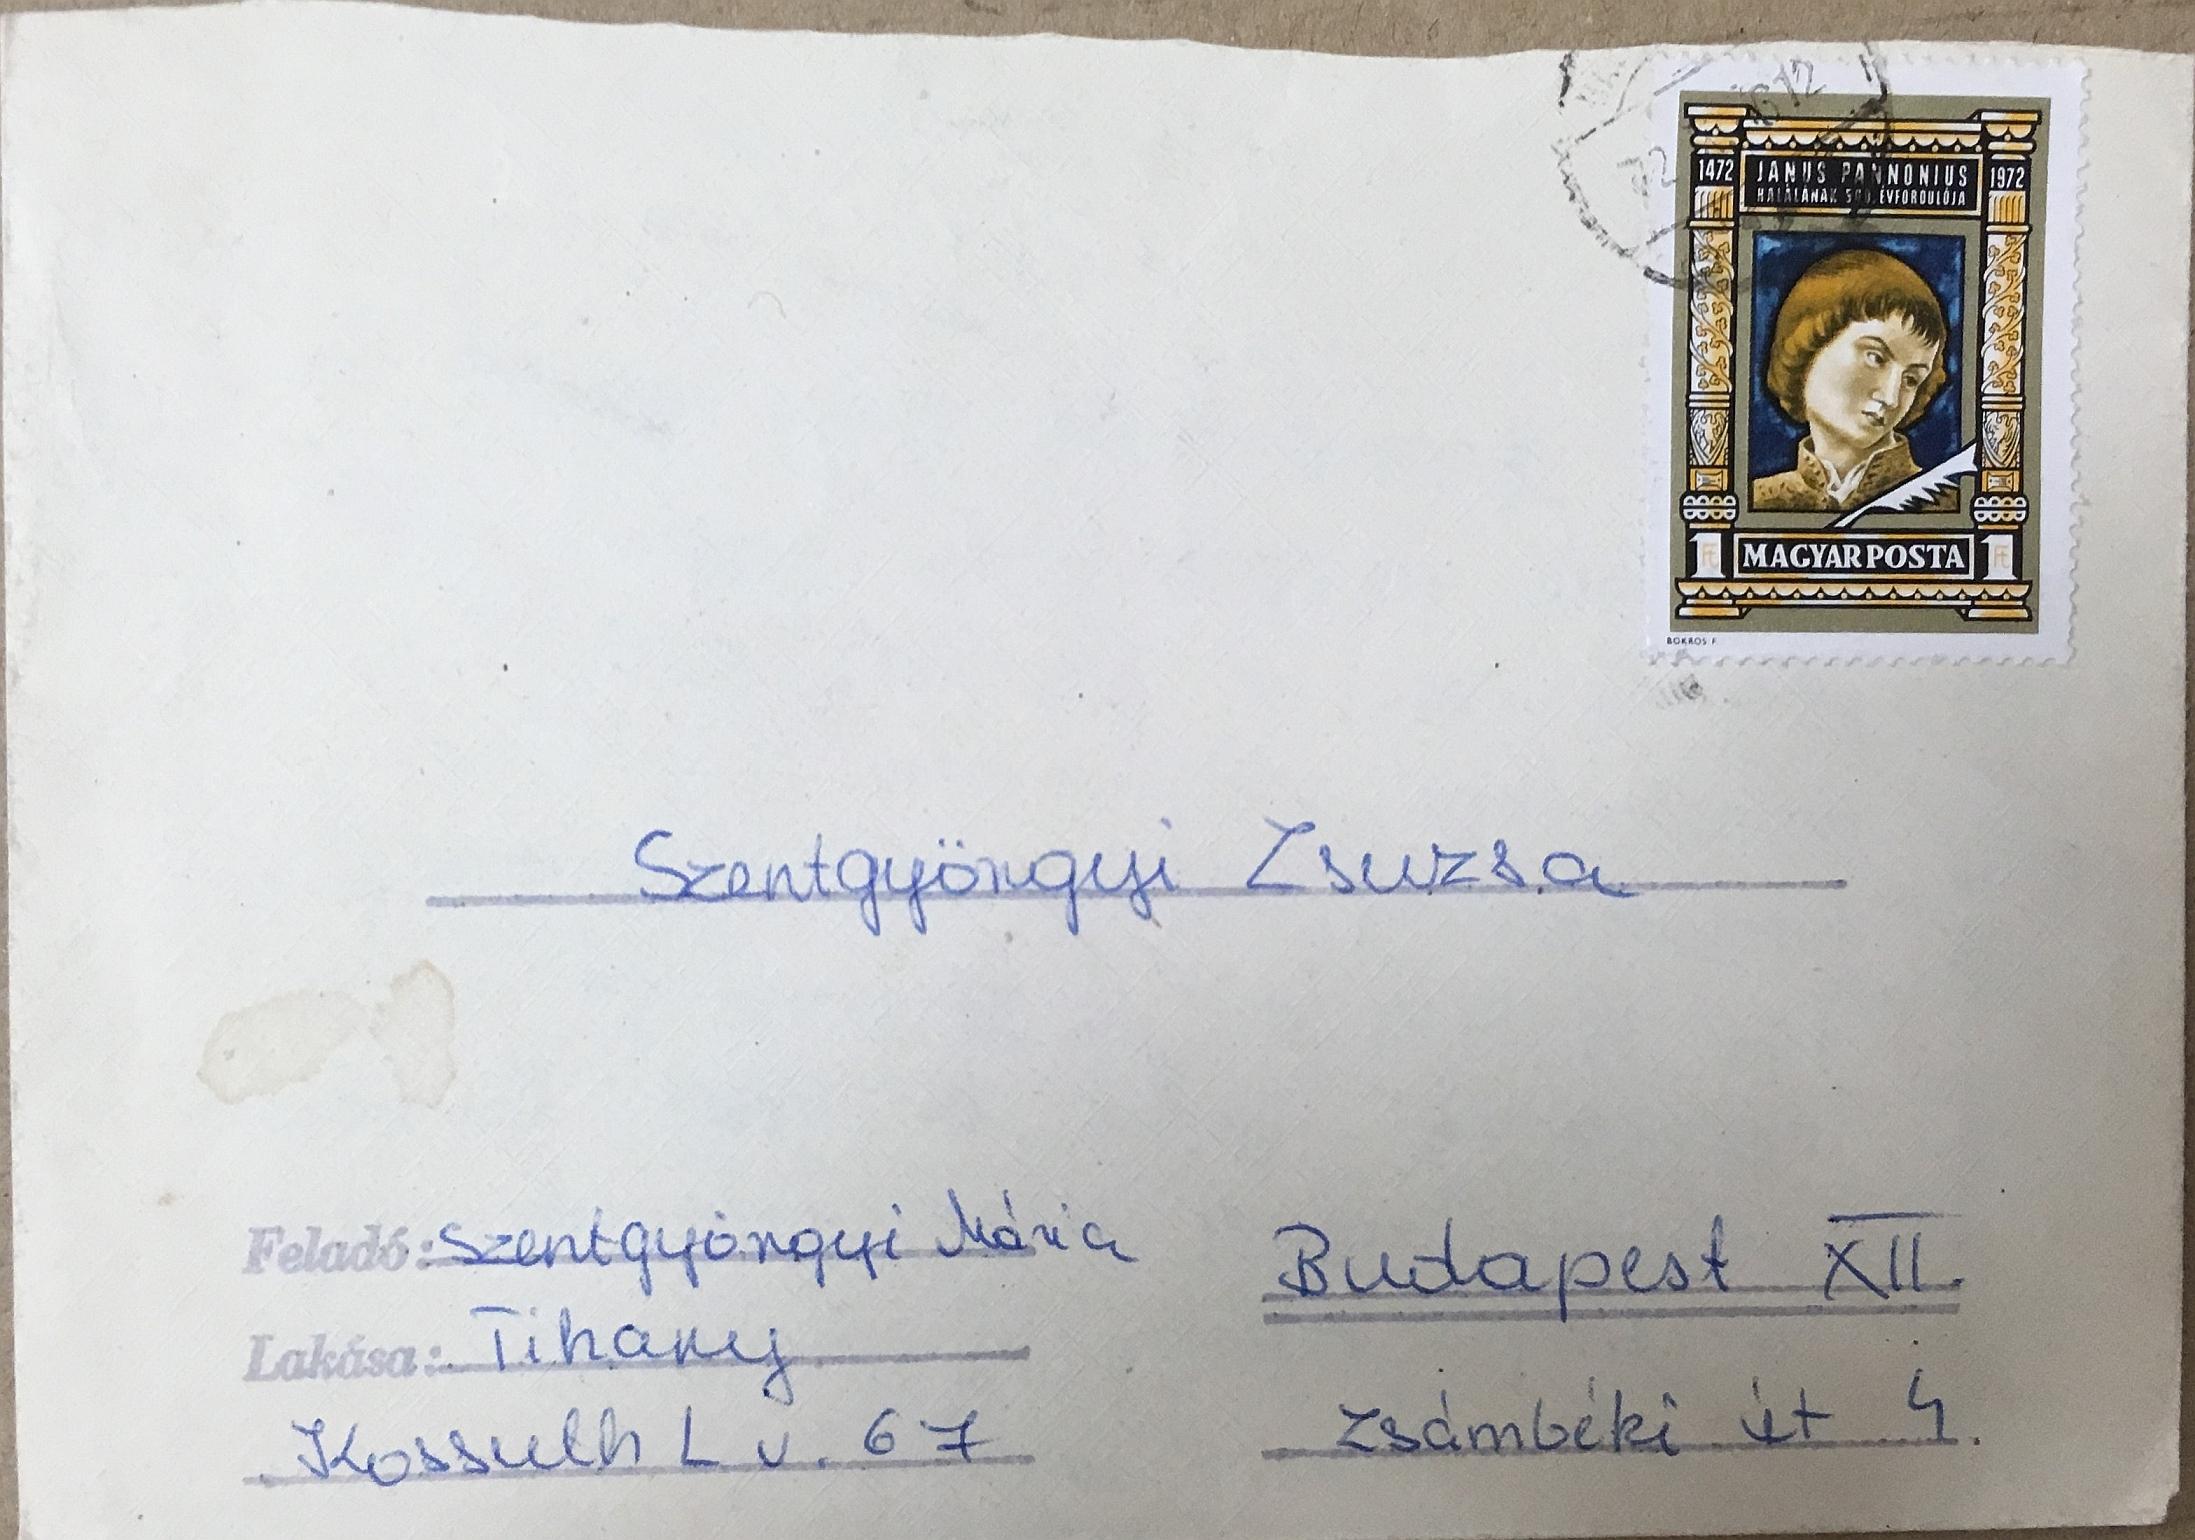 1472 JANUS PANNONIUS 1972
HALÁLÁNAK 500. ÉVFORDULÓJA
1 Ft MAGYAR POSTA 1 Ft
BOKROS F.
Szentgyöngyi Zsuzsa
Feladó: Szentgyöngyi Mária
Lakása: Tihany
Kossuth L u. 67
Budapest XII.
Zsámbéki út 4.